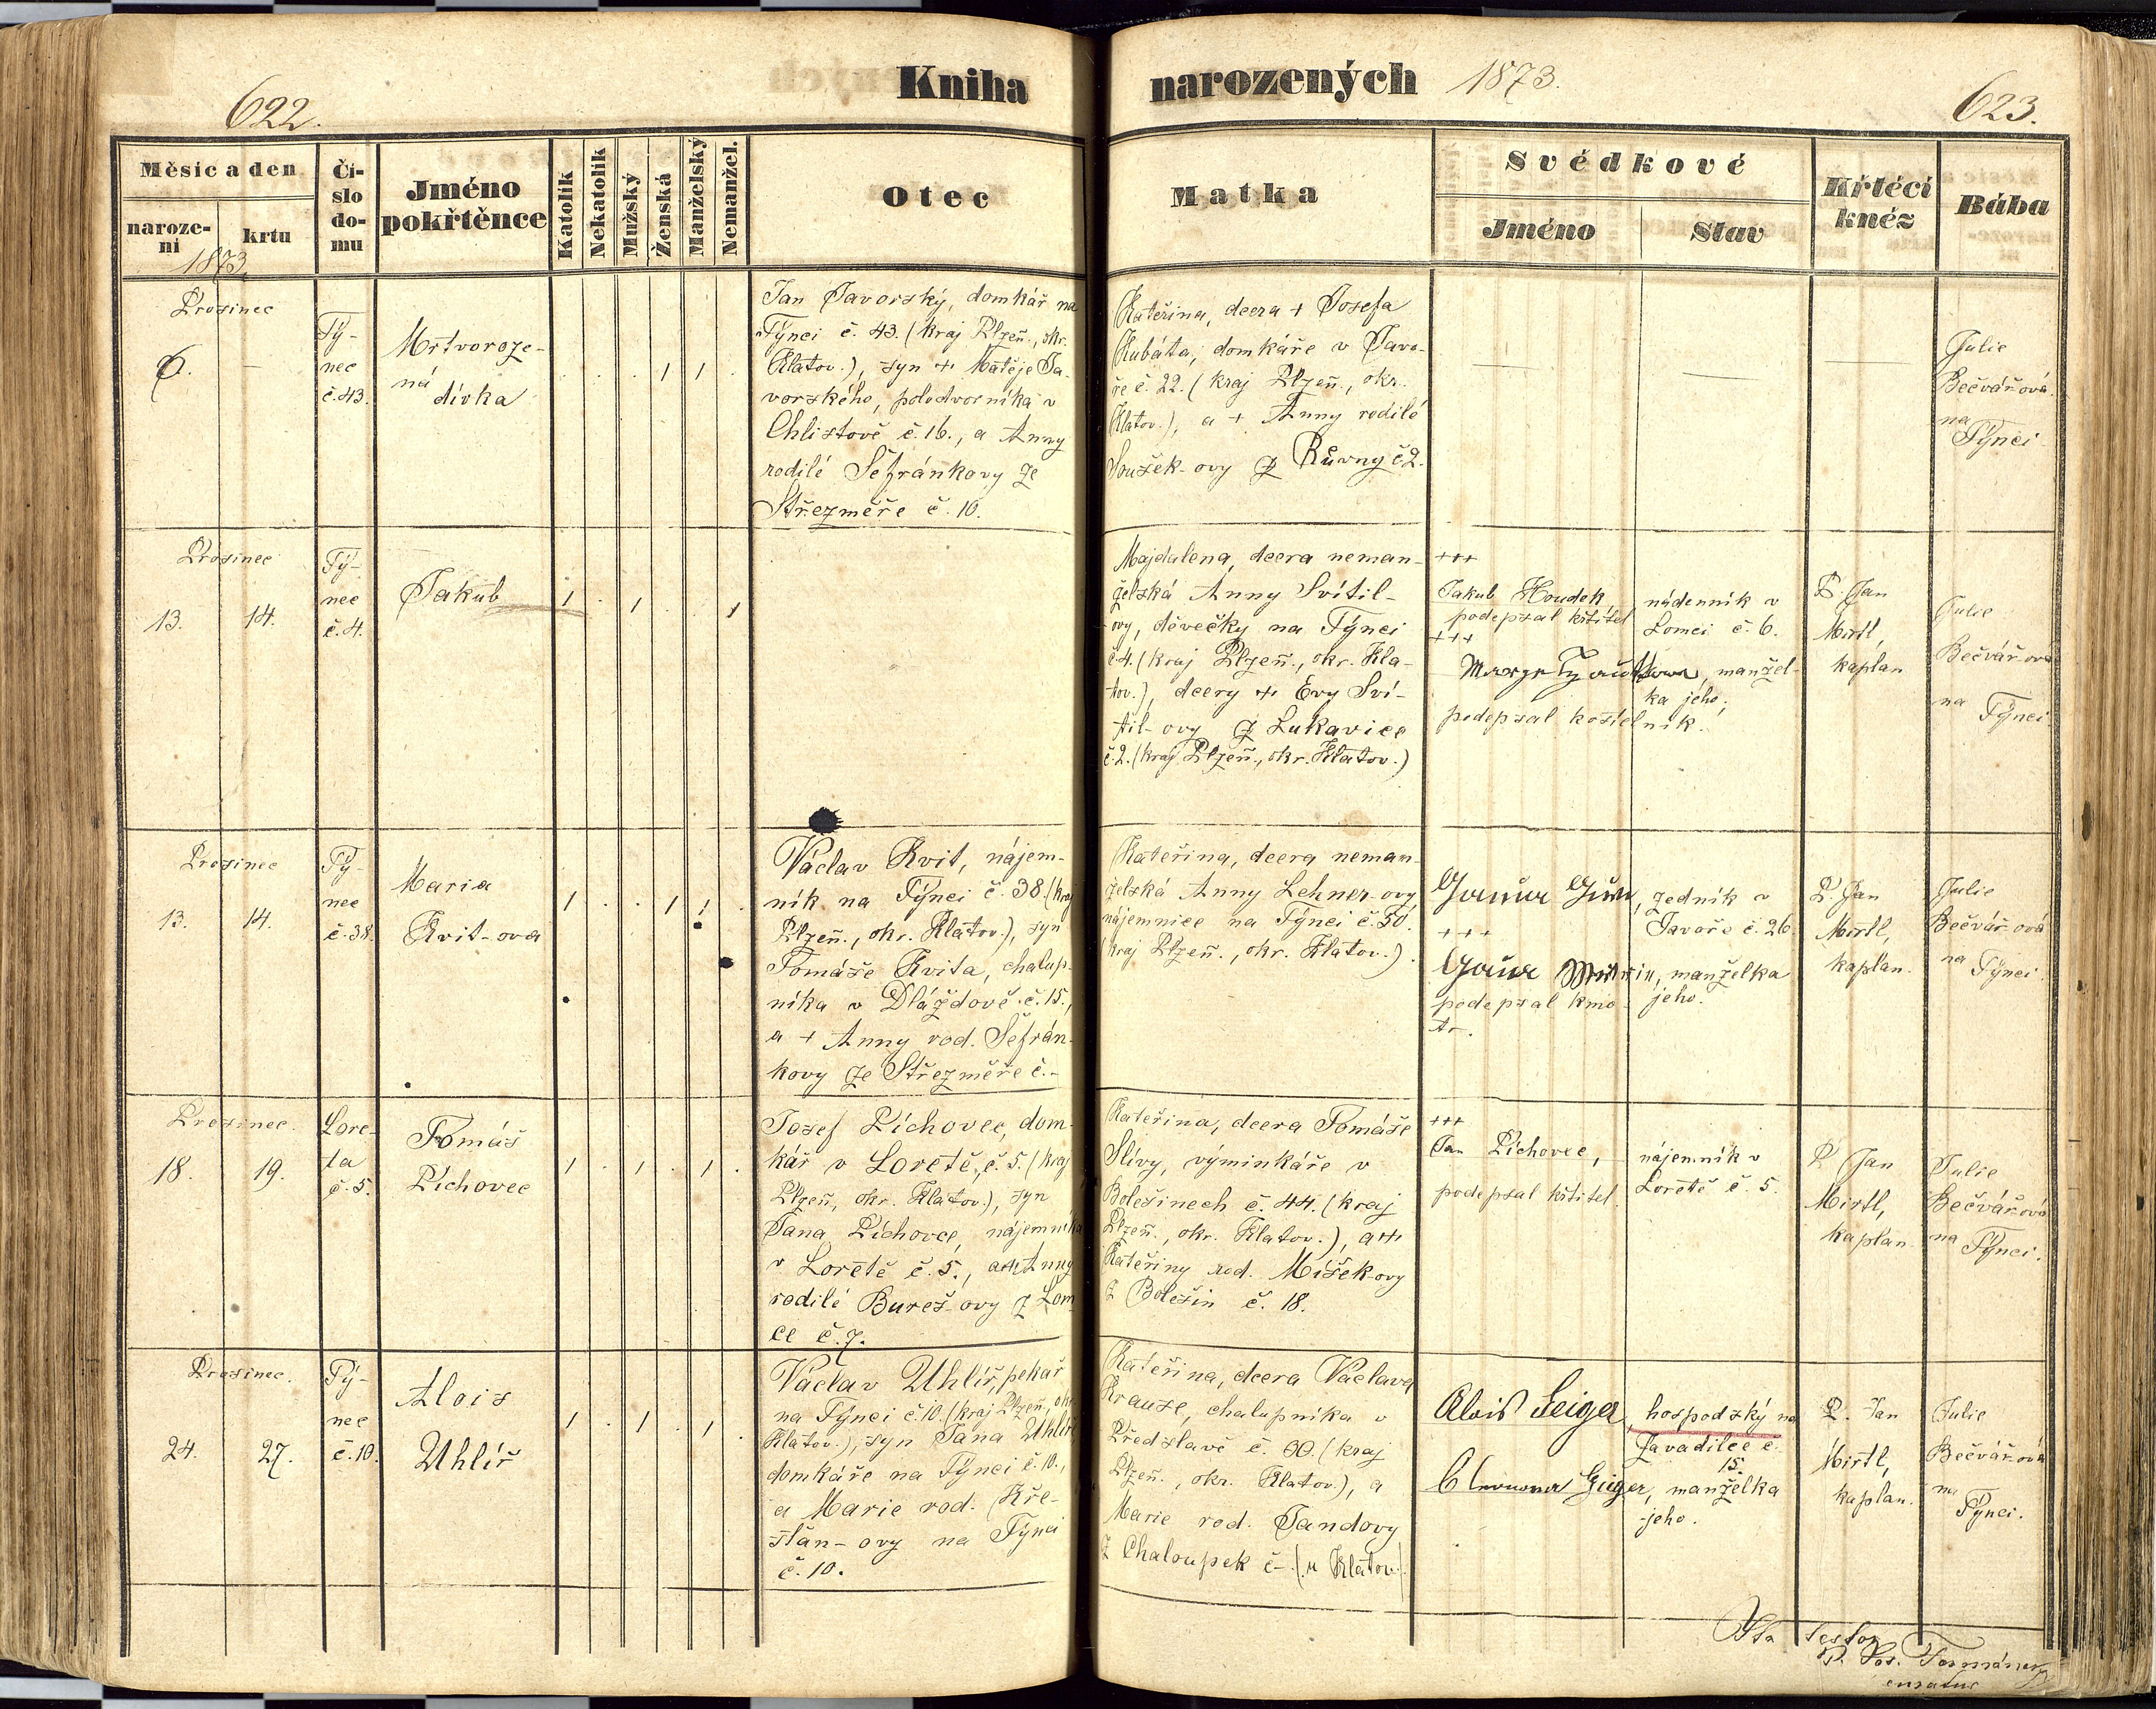 Kniha narozených 1873.
622.
623.
Měsíc a den
naroze-
ní
krtu
1873
Čí-
slo
do-
mu
Jméno
pokřtěnce
Katolík
Nekatolík
Mužský
Ženská
Manželský
Nemanžel.
Otec
Matka
Svědkové
Jméno
Stav
Křtécí
kněz
Bába
Prosinec
6.
—
Tý-
nec
č. 43.
Mrtvoroze-
ná
dívka
. . . 1 1 .
Jan Javorský, domkář na
Týnci č. 43. (kraj Plzeň., okr.
Klatov.), syn + Matěje Ja-
vorského, polodvorníka v
Chlistově č. 16., a Anny
rodilé Šefránkovy ze
Střezměře č. 10.
Kateřina, dcera + Josefa
Kubáta, domkáře v Javo-
ře č. 22. (kraj Plzeň., okr.
Klatov.), a + Anny rodilé
Soušek-ovy z Růvny č 2.
—
—
—
Julie
Bečvářová
na
Týnci
Prosinec
13.
14.
Tý-
nec
č. 4.
Jakub
1 . 1 . . 1
Majdalena, dcera neman-
želská Anny Svítil-
ovy, děvečky na Týnci
č 4. (kraj Plzeň., okr. Kla-
tov.), dcery + Evy Sví-
til-ovy z Lukavice
č. 2. (kraj Plzeň., okr. Klatov.)
+++
Jakub Houdek,
podepsal křtitel
+++
manžel-
ka jeho;
podepsal kostelník.
nádenník v
Lomci č. 6.
P. Jan
Mirtl,
kaplan
Julie
Bečvářová
na
Týnci
Prosinec
13.
14.
Tý-
nec
č. 38.
Maria
Kvit-ova
1 . . 1 1 .
Václav Kvit, nájem-
ník na Týnci č. 38. (kraj
Plzeň., okr. Klatov.), syn
Tomáše Kvita, chalup-
níka v Dláždově č. 15.,
a + Anny rod. Šefrán-
kovy ze Střezměře č. -
Kateřina, dcera neman-
želská Anny Lehner-ovy,
nájemnice na Týnci č. 50.
(kraj Plzeň., okr. Klatov.).
zedník v
Javoře č. 26.
+++
manželka
jeho.
podepsal kmo-
tr.
P. Jan
Mirtl,
kaplan.
Julie
Bečvářová
na
Týnci
Prosinec.
18.
19.
Lore-
ta
č. 5.
Tomáš
Píchovec
1 . 1 . 1 .
Josef Píchovec, dom-
kář v Loretě, č. 5. (kraj
Plzeň, okr. Klatov.), syn
Jana Píchovce, nájemníka
v Loretě č. 5., a + Anny
rodilé Bureš-ovy z Lom-
ce č. 7.
Kateřina, dcera Tomáše
Slívy, výminkáře v
Bolešinech č. 44. (kraj
Plzeň., okr. Klatov.), a +
Kateřiny rod. Míšek-ovy
z Bolešin č. 18.
+++
Jan Píchovec,
podepsal křtitel.
nájemník v
Loretě č. 5.
P. Jan
Mirtl,
kaplan
Julie
Bečvářová
na
Týnci.
Prosinec.
24.
27.
Tý-
nec
č. 10.
Alois
Uhlíř
1 . 1 . 1 .
Václav Uhlíř, pekař
na Týnci č. 10. (kraj Plzeň., okr.
Klatov.), syn Jana Uhlíř
domkáře na Týnci č. 10.,
a Marie rod. Kře-
sťan-ovy na Týnci
č. 10.
Kateřina, dcera Václava
Krause, chalupníka v
Předslavě č. 00. (kraj
Plzeň., okr. Klatov.), a
Marie rod. Jandovy
z Chaloupek č - (u Klatov)
Alois Geiger,
hospodský na
Zavadilce č.
15.
Geiger, manželka
jeho.
P. Jan
Mirtl,
kaplan.
Julie
Bečvářová
na
Týnci.
Ita testor
P. Jos.